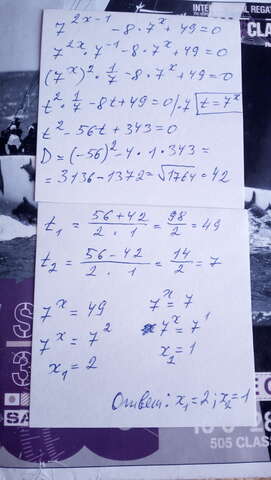 7^{2x-1} - 8·7^x + 49 = 0
7^{2x} · 7^{-1} - 8·7^x + 49 = 0
(7^x)^2 · 1/7 - 8·7^x + 49 = 0
t^2 · 1/7 - 8t + 49 = 0 |·7 t = 7^x
t^2 - 56t + 343 = 0
D = (-56)^2 - 4·1·343 =
= 3136 - 1372 = √1764 = 42
t_1 = (56+42)/(2·1) = 98/2 = 49
t_2 = (56-42)/(2·1) = 14/2 = 7
7^x = 49 7^x = 7
7^x = 7^2 7^x = 7^1
x_1 = 2 x_2 = 1
Ответ: x_1 = 2; x_2 = 1
SA
505 CLASS